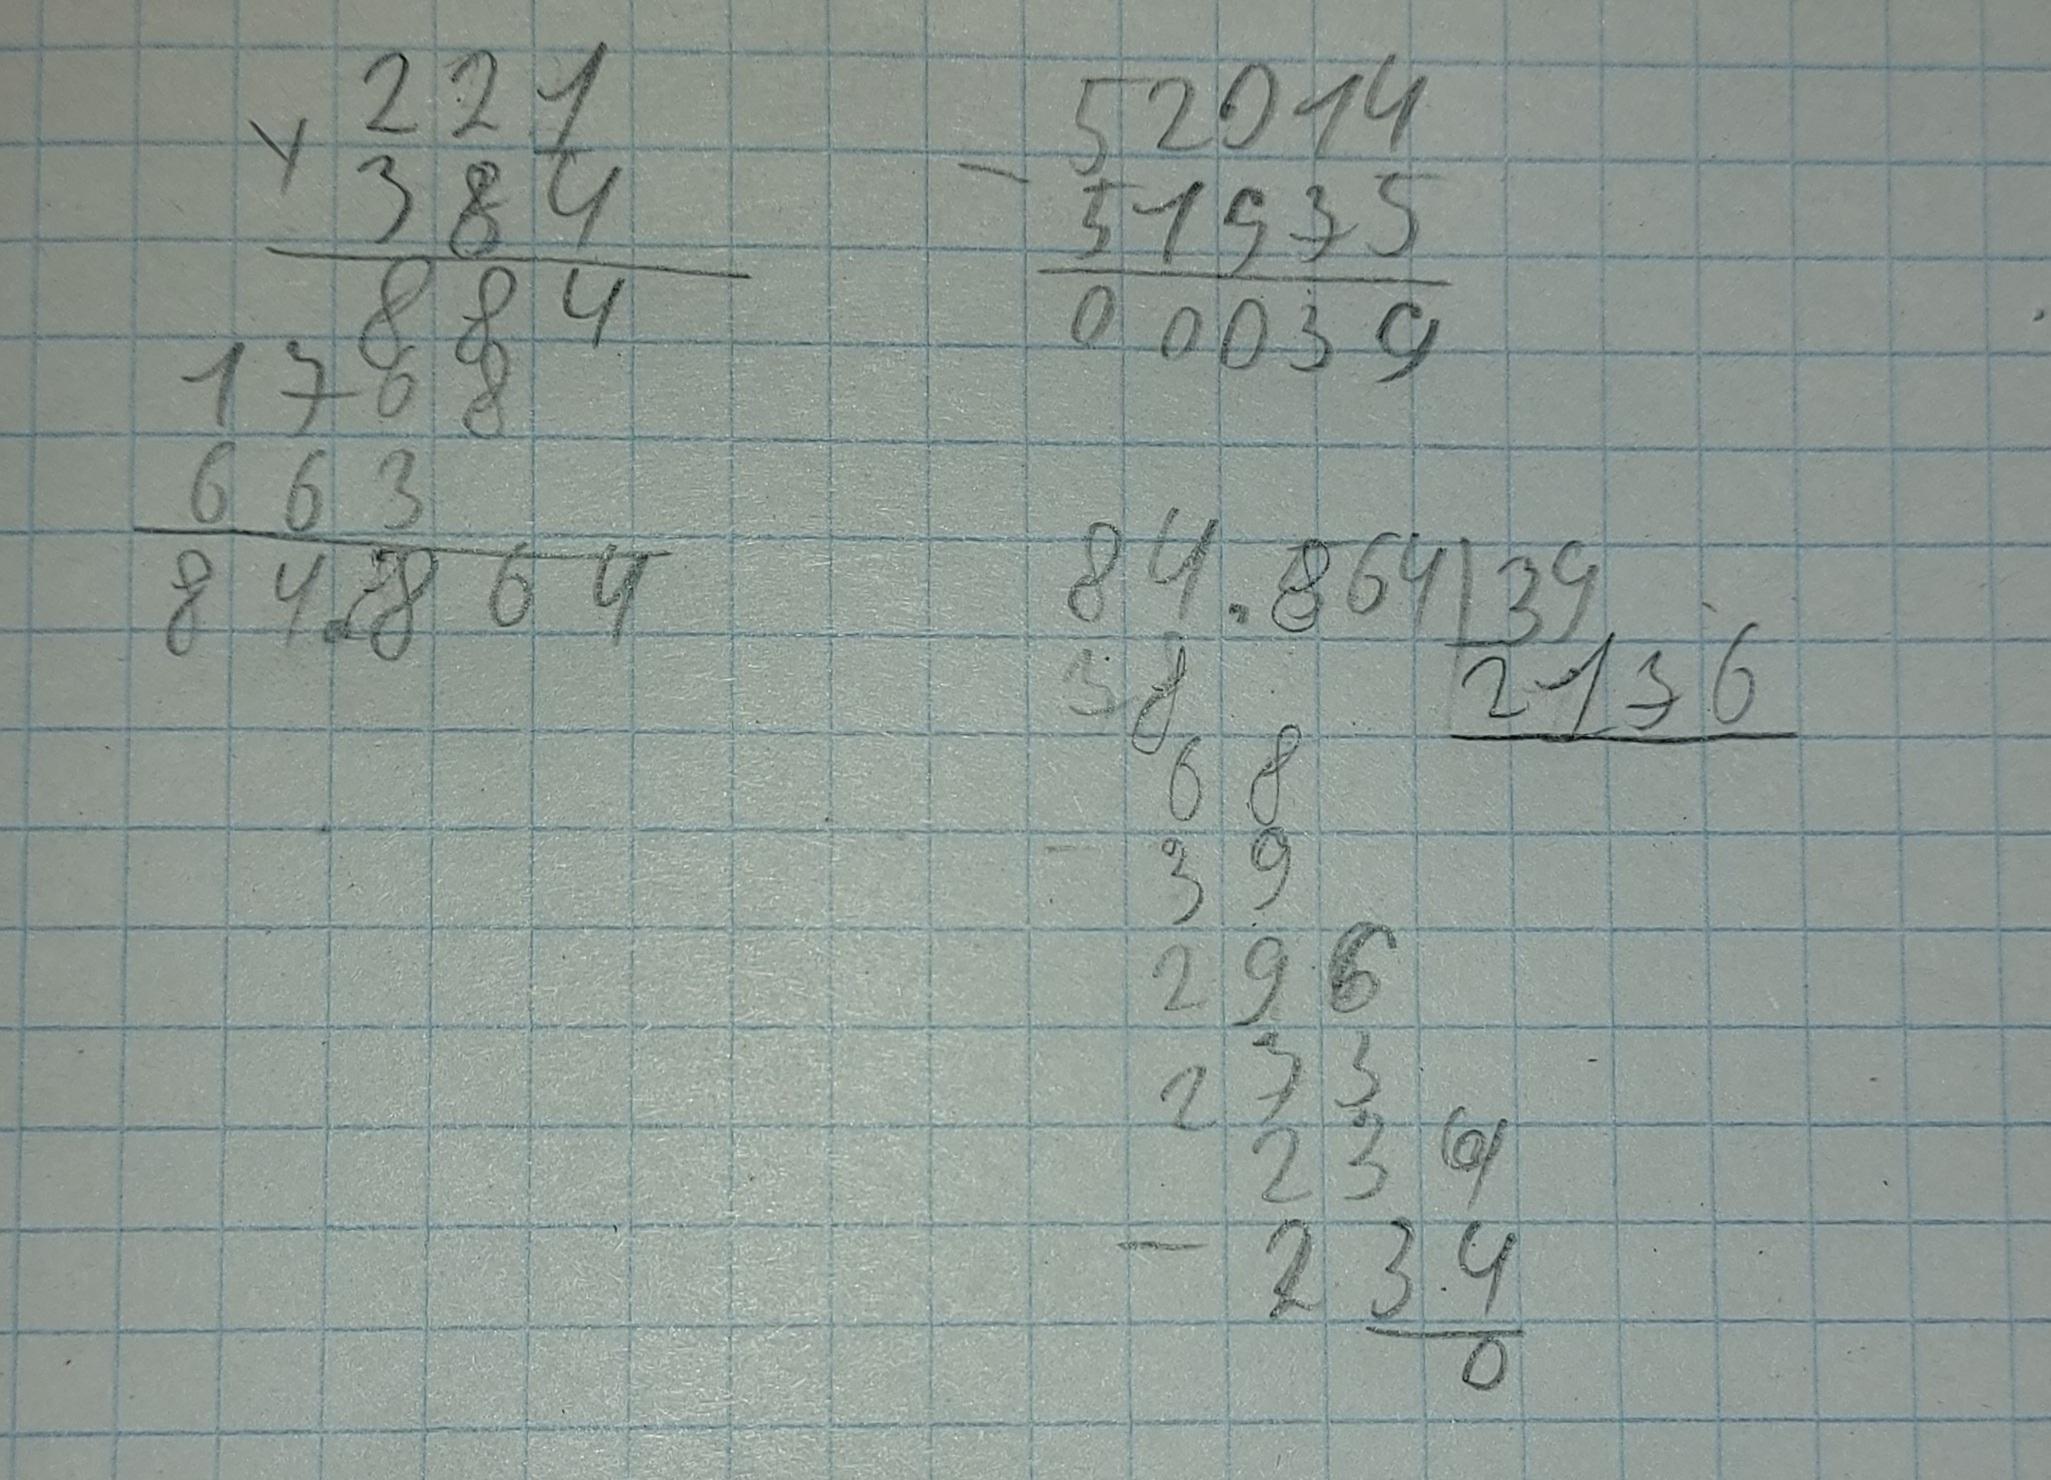 221
× 384
884
1768
663
84.864
52014
- 51975
00039
84.864 | 39
78 2176
68
- 39
296
273
234
- 234
0